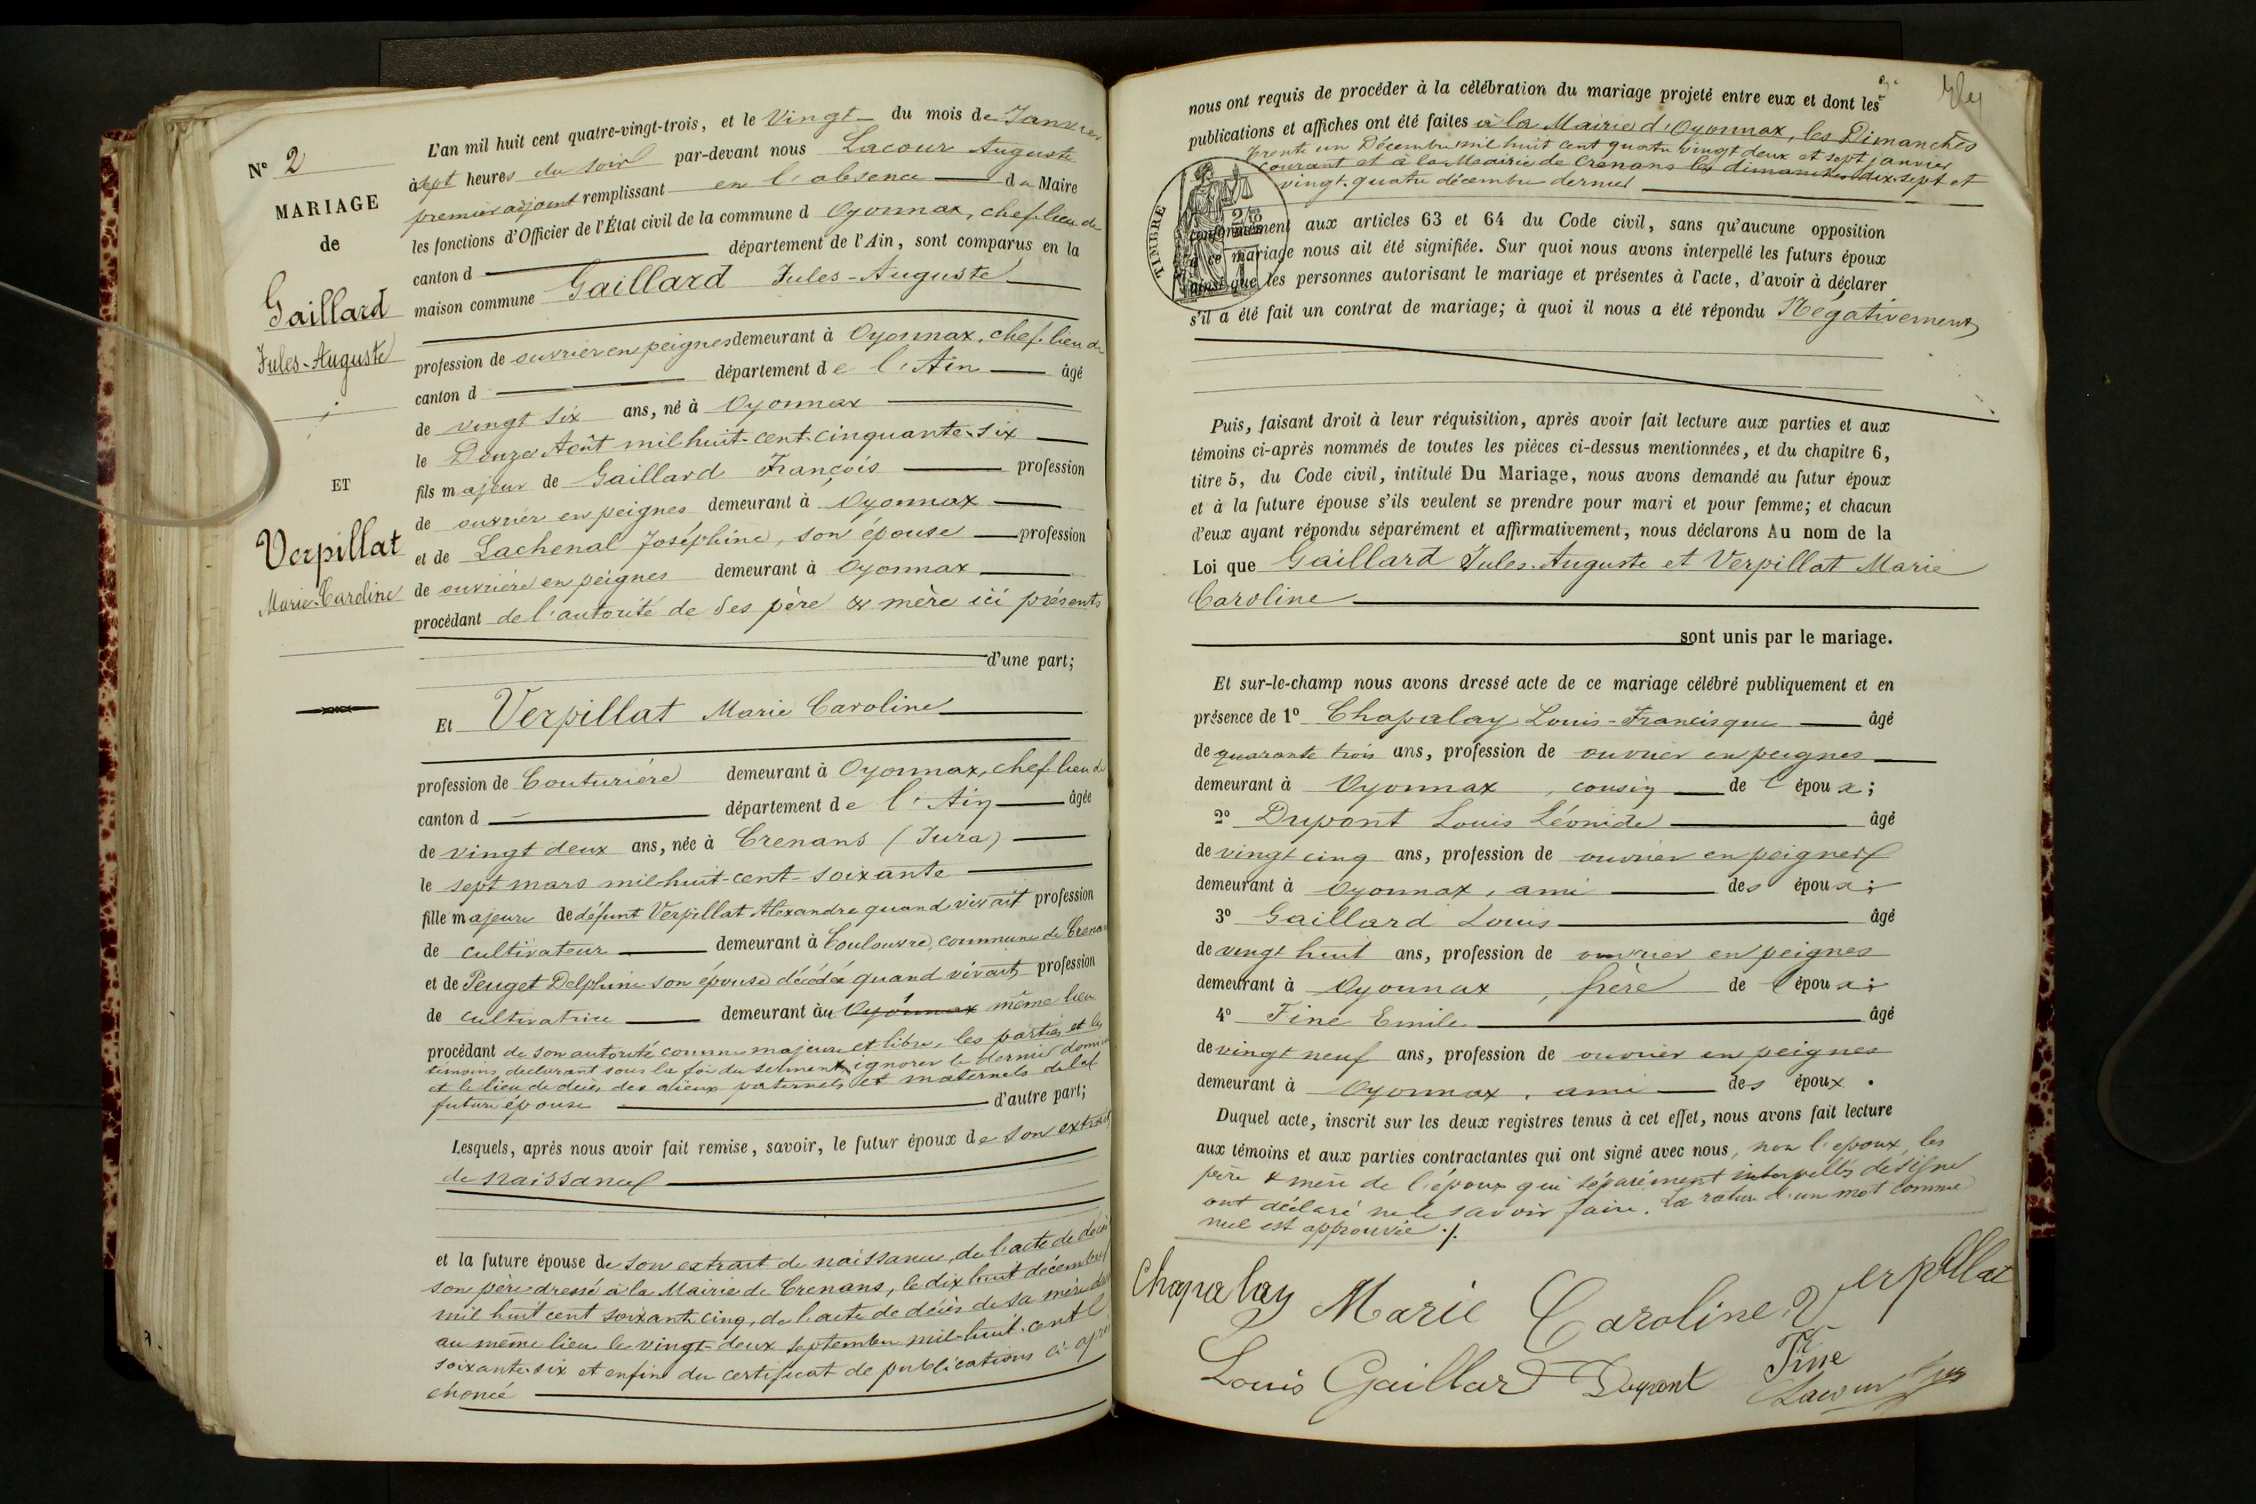 N° 2
MARIAGE
de
Gaillard
Jules-Auguste
ET
Verpillat
Marie-Caroline
L'an mil huit cent quatre-vingt-trois, et le Vingt du mois de Janvier
à sept heures du soir par-devant nous Lacour Auguste
premier adjoint remplissant en l'absence du Maire
les fonctions d'Officier de l'État civil de la commune d Oyonnax, chef-lieu de
canton d département de l'Ain, sont comparus en la
maison commune Gaillard Jules-Auguste
profession de ouvrier en peignes demeurant à Oyonnax, chef-lieu de
canton d département de l'Ain âgé
de vingt six ans, né à Oyonnax
le Douze Août mil huit-cent-cinquante-six
fils majeur de Gaillard François profession
de ouvrier en peignes demeurant à Oyonnax
et de Lachenal Joséphine, son épouse profession
de ouvrière en peignes demeurant à Oyonnax
procédant de l'autorité de ses père & mère ici présents
d'une part;
Et Verpillat Marie Caroline
profession de Couturière demeurant à Oyonnax, chef lieu de
canton d département de l'Ain âgée
de vingt deux ans, née à Crenans (Jura)
le sept mars mil huit-cent-soixante
fille majeure de défunt Verpillat Alexandre quand vivait profession
de cultivateur demeurant à Coulouvre, commune de Crenans
et de Peuget Delphine son épouse décédée quand vivait profession
de cultivatrice demeurant au Oyonnax même lieu
procédant de son autorité comme majeure et libre, les parties et les
témoins déclarant sous la foi du serment ignorer le dernier domicile
et le lieu de décès des aïeux paternels et maternels de la
future épouse d'autre part;
Lesquels, après nous avoir fait remise, savoir, le futur époux de son extrait
de naissance
et la future épouse de son extrait de naissance, de l'acte de décès
son père dressé à la Mairie de Crenans, le dix huit décembre
mil huit cent soixante cinq, de l'acte de décès de sa mère
au même lieu le vingt-deux septembre mil-huit-cent
soixante-six et enfin du certificat de publications ci-après
énoncé
nous ont requis de procéder à la célébration du mariage projeté entre eux et dont les
publications et affiches ont été faites à la Mairie d'Oyonnax, les Dimanches
trente un Décembre mil huit cent quatre vingt deux et sept janvier
courant et à la Mairie de Crenans les dimanches dix-sept et
vingt-quatre décembre dernier
TIMBRE
conformément aux articles 63 et 64 du Code civil, sans qu'aucune opposition
à ce mariage nous ait été signifiée. Sur quoi nous avons interpellé les futurs époux
ainsi que les personnes autorisant le mariage et présentes à l'acte, d'avoir à déclarer
s'il a été fait un contrat de mariage; à quoi il nous a été répondu Négativement
Puis, faisant droit à leur réquisition, après avoir fait lecture aux parties et aux
témoins ci-après nommés de toutes les pièces ci-dessus mentionnées, et du chapitre 6,
titre 5, du Code civil, intitulé Du Mariage, nous avons demandé au futur époux
et à la future épouse s'ils veulent se prendre pour mari et pour femme; et chacun
d'eux ayant répondu séparément et affirmativement, nous déclarons Au nom de la
Loi que Gaillard Jules-Auguste et Verpillat Marie
Caroline
sont unis par le mariage.
Et sur-le-champ nous avons dressé acte de ce mariage célébré publiquement et en
présence de 1° Chapalay Louis-Francisque âgé
de quarante trois ans, profession de ouvrier en peignes
demeurant à Oyonnax, cousin de l'époux;
2° Dupont Louis Léonide âgé
de vingt cinq ans, profession de ouvrier en peignes
demeurant à Oyonnax, ami des époux;
3° Gaillard Louis âgé
de vingt huit ans, profession de ouvrier en peignes
demeurant à Oyonnax, frère de l'époux;
4° Fine Emile âgé
de vingt neuf ans, profession de ouvrier en peignes
demeurant à Oyonnax, ami des époux.
Duquel acte, inscrit sur les deux registres tenus à cet effet, nous avons fait lecture
aux témoins et aux parties contractantes qui ont signé avec nous, non l'époux, les
père & mère de l'époux qui séparément interpellés de signer
ont déclaré ne le savoir faire. La rature d'un mot comme
nul est approuvée ./.
Chapalay Marie Caroline Verpillat
Louis Gaillard Dupont Fine
Lacour